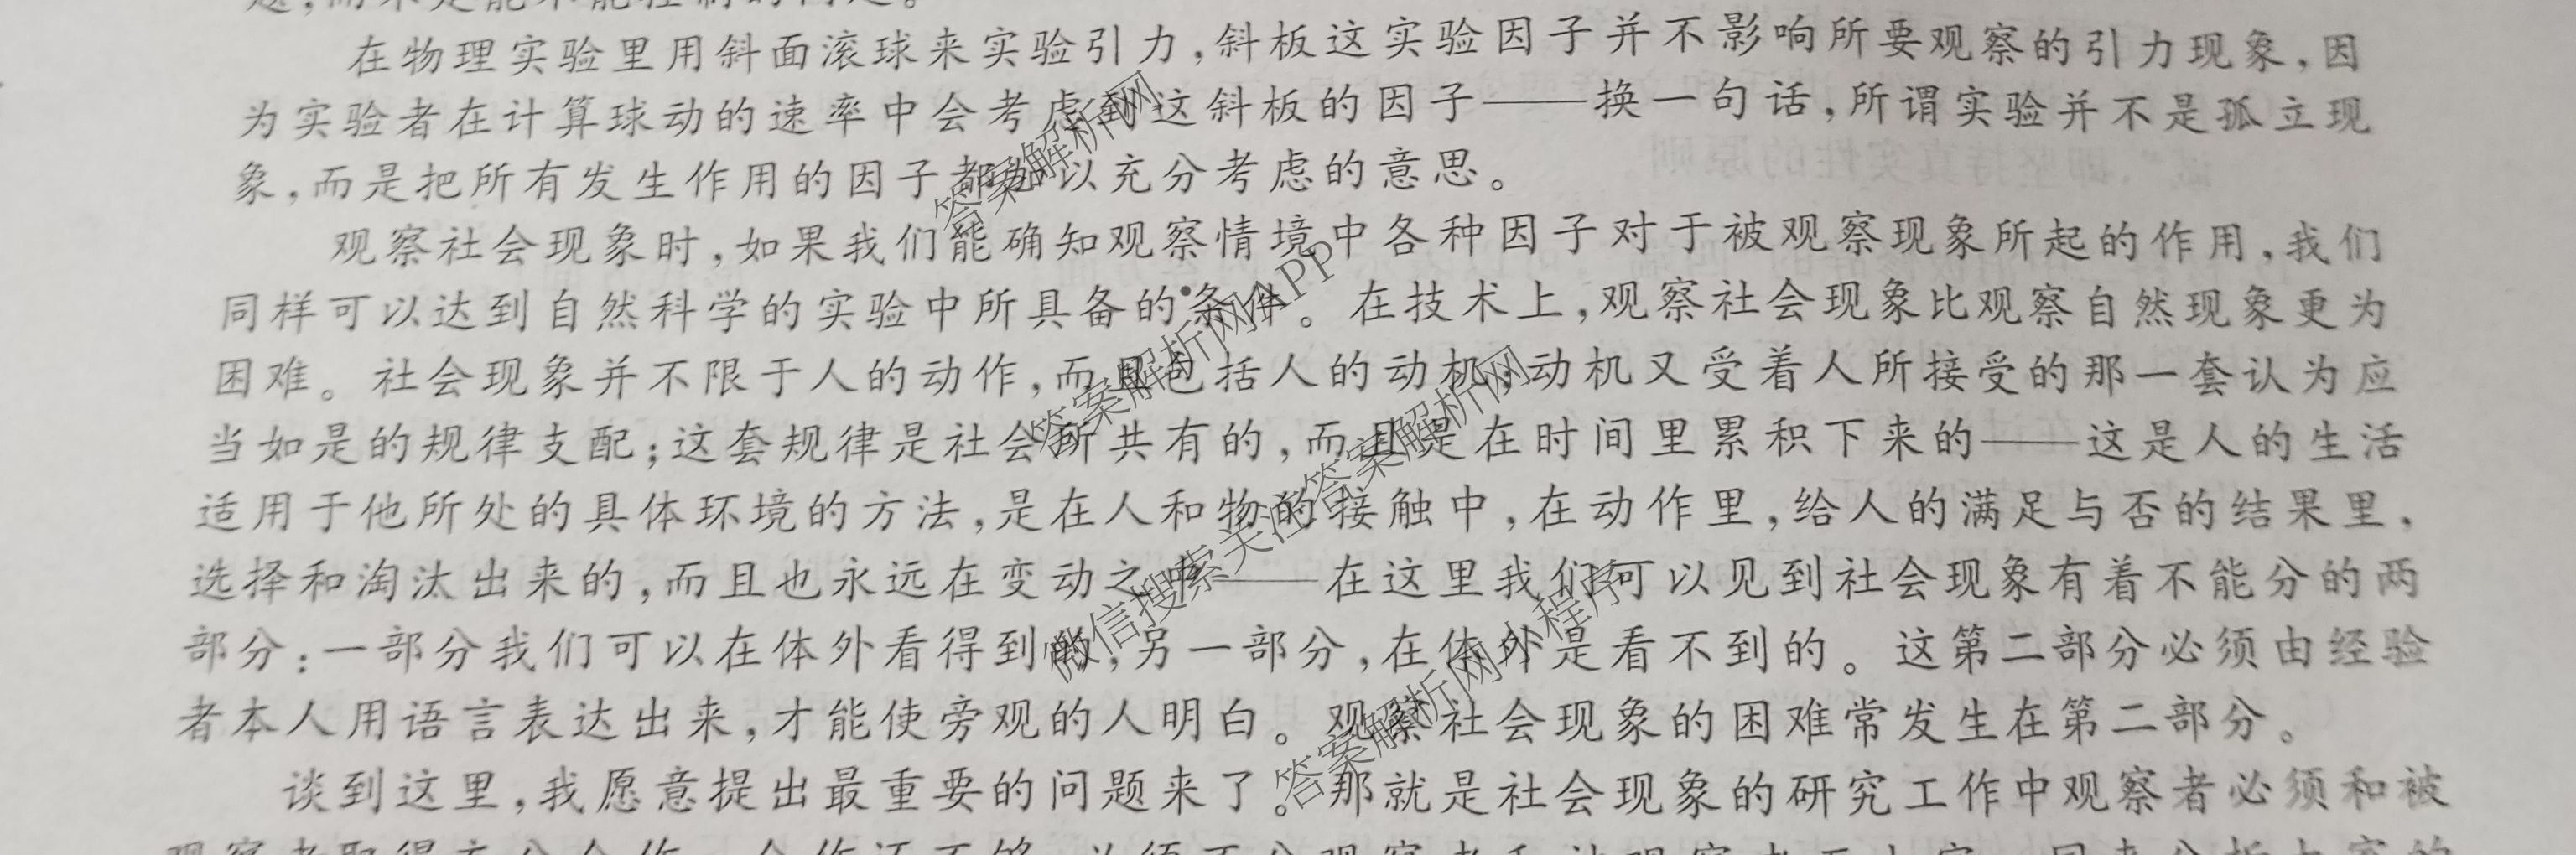 在物理实验里用斜面滚球来实验引力,斜板这实验因子并不影响所要观察的引力现象,因
为实验者在计算球动的速率中会考虑到这斜板的因子——换一句话,所谓实验并不是孤立现
象,而是把所有发生作用的因子都加以充分考虑的意思。
观察社会现象时,如果我们能确知观察情境中各种因子对于被观察现象所起的作用,我们
同样可以达到自然科学的实验中所具备的条件。在技术上,观察社会现象比观察自然现象更为
困难。社会现象并不限于人的动作,而且包括人的动机,动机又受着人所接受的那一套认为应
当如是的规律支配;这套规律是社会所共有的,而且是在时间里累积下来的——这是人的生活
适用于他所处的具体环境的方法,是在人和物的接触中,在动作里,给人的满足与否的结果里,
选择和淘汰出来的,而且也永远在变动之中——在这里我们可以见到社会现象有着不能分的两
部分:一部分我们可以在体外看得到的,另一部分,在体外是看不到的。这第二部分必须由经验
者本人用语言表达出来,才能使旁观的人明白。观察社会现象的困难常发生在第二部分。
谈到这里,我愿意提出最重要的问题来了。那就是社会现象的研究工作中观察者必须和被
答案解析网
答案解析网APP
微信搜索关注答案解析网
答案解析网小程序